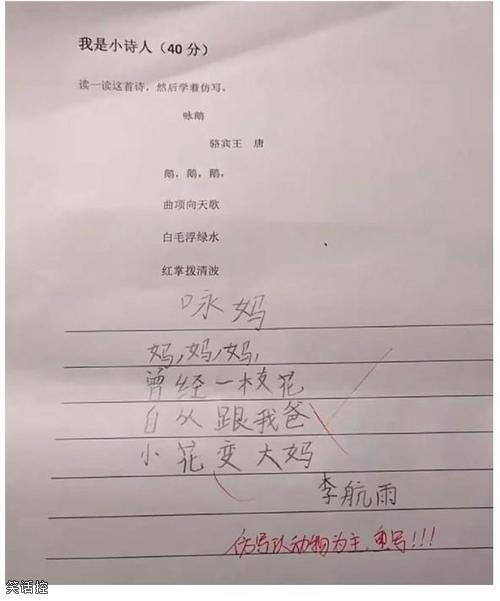 我是小诗人（40 分）
读一读这首诗，然后学着仿写。
咏鹅
骆宾王 唐
鹅，鹅，鹅，
曲项向天歌
白毛浮绿水
红掌拨清波
咏妈
妈,妈,妈,
曾经一枝花
自从跟我爸
小花变大妈
李航雨
仿写以动物为主,重写!!!
笑话控